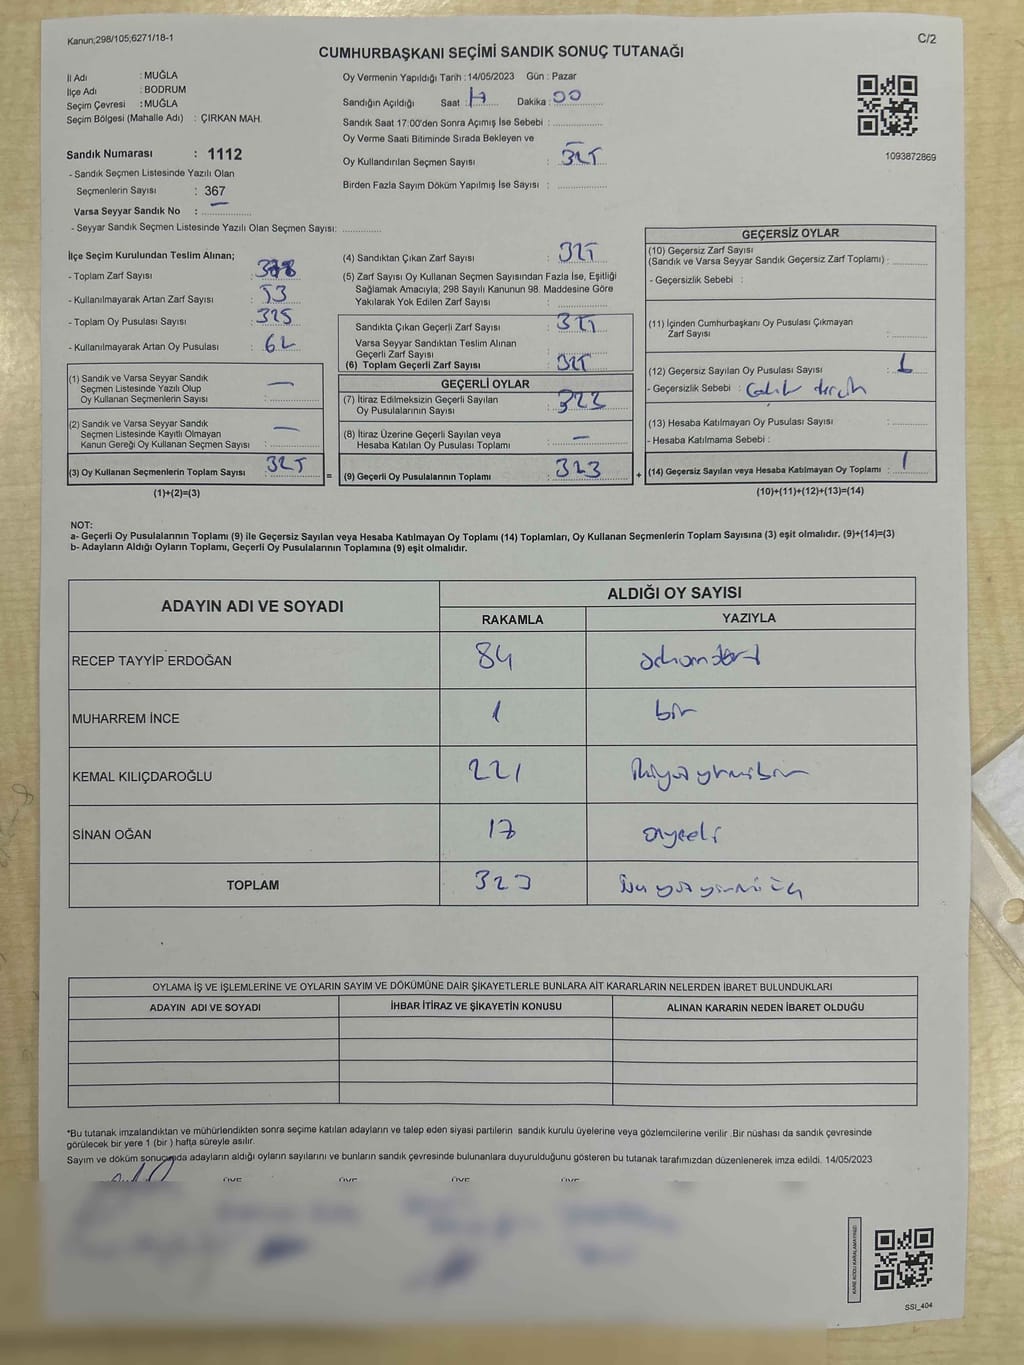 Kanun;298/105;6271/18-1
C/2
CUMHURBAŞKANI SEÇİMİ SANDIK SONUÇ TUTANAĞI
İl Adı : MUĞLA
İlçe Adı : BODRUM
Seçim Çevresi : MUĞLA
Seçim Bölgesi (Mahalle Adı) : ÇIRKAN MAH.
Sandık Numarası : 1112
- Sandık Seçmen Listesinde Yazılı Olan
Seçmenlerin Sayısı : 367
Varsa Seyyar Sandık No : —
- Seyyar Sandık Seçmen Listesinde Yazılı Olan Seçmen Sayısı:
Oy Vermenin Yapıldığı Tarih : 14/05/2023 Gün : Pazar
Sandığın Açıldığı Saat : 17 Dakika : 00
Sandık Saat 17:00'den Sonra Açımış İse Sebebi :
Oy Verme Saati Bitiminde Sırada Bekleyen ve
Oy Kullandırılan Seçmen Sayısı : 325
Birden Fazla Sayım Döküm Yapılmış İse Sayısı :
1093872869
İlçe Seçim Kurulundan Teslim Alınan;
- Toplam Zarf Sayısı : 378
- Kullanılmayarak Artan Zarf Sayısı : 53
- Toplam Oy Pusulası Sayısı : 325
- Kullanılmayarak Artan Oy Pusulası : 62
(1) Sandık ve Varsa Seyyar Sandık
Seçmen Listesinde Yazılı Olup
Oy Kullanan Seçmenlerin Sayısı : —
(2) Sandık ve Varsa Seyyar Sandık
Seçmen Listesinde Kayıtlı Olmayan
Kanun Gereği Oy Kullanan Seçmen Sayısı : —
(3) Oy Kullanan Seçmenlerin Toplam Sayısı : 325
(1)+(2)=(3)
(4) Sandıktan Çıkan Zarf Sayısı : 325
(5) Zarf Sayısı Oy Kullanan Seçmen Sayısından Fazla İse, Eşitliği
Sağlamak Amacıyla; 298 Sayılı Kanunun 98. Maddesine Göre
Yakılarak Yok Edilen Zarf Sayısı :
Sandıkta Çıkan Geçerli Zarf Sayısı : 325
Varsa Seyyar Sandıktan Teslim Alınan
Geçerli Zarf Sayısı
(6) Toplam Geçerli Zarf Sayısı : 325
GEÇERLİ OYLAR
(7) İtiraz Edilmeksizin Geçerli Sayılan
Oy Pusulalarının Sayısı : 322
(8) İtiraz Üzerine Geçerli Sayılan veya
Hesaba Katılan Oy Pusulası Toplamı : —
= (9) Geçerli Oy Pusulalarının Toplamı : 323 +
GEÇERSİZ OYLAR
(10) Geçersiz Zarf Sayısı
(Sandık ve Varsa Seyyar Sandık Geçersiz Zarf Toplamı) :
- Geçersizlik Sebebi :
(11) İçinden Cumhurbaşkanı Oy Pusulası Çıkmayan
Zarf Sayısı :
(12) Geçersiz Sayılan Oy Pusulası Sayısı : 1
- Geçersizlik Sebebi :
(13) Hesaba Katılmayan Oy Pusulası Sayısı :
- Hesaba Katılmama Sebebi :
(14) Geçersiz Sayılan veya Hesaba Katılmayan Oy Toplamı : 1
(10)+(11)+(12)+(13)=(14)
NOT:
a- Geçerli Oy Pusulalarının Toplamı (9) ile Geçersiz Sayılan veya Hesaba Katılmayan Oy Toplamı (14) Toplamları, Oy Kullanan Seçmenlerin Toplam Sayısına (3) eşit olmalıdır. (9)+(14)=(3)
b- Adayların Aldığı Oyların Toplamı, Geçerli Oy Pusulalarının Toplamına (9) eşit olmalıdır.
ADAYIN ADI VE SOYADI
ALDIĞI OY SAYISI
RAKAMLA YAZIYLA
RECEP TAYYİP ERDOĞAN 84 seksendört
MUHARREM İNCE 1 bir
KEMAL KILIÇDAROĞLU 221 ikiyüzyirmibir
SİNAN OĞAN 17 onyedi
TOPLAM 323 üçyüzyirmiüç
OYLAMA İŞ VE İŞLEMLERİNE VE OYLARIN SAYIM VE DÖKÜMÜNE DAİR ŞİKAYETLERLE BUNLARA AİT KARARLARIN NELERDEN İBARET BULUNDUKLARI
ADAYIN ADI VE SOYADI İHBAR İTİRAZ VE ŞİKAYETİN KONUSU ALINAN KARARIN NEDEN İBARET OLDUĞU
*Bu tutanak imzalandıktan ve mühürlendikten sonra seçime katılan adayların ve talep eden siyasi partilerin sandık kurulu üyelerine veya gözlemcilerine verilir .Bir nüshası da sandık çevresinde
görülecek bir yere 1 (bir ) hafta süreyle asılır.
Sayım ve döküm sonuçunda adayların aldığı oyların sayılarını ve bunların sandık çevresinde bulunanlara duyurulduğunu gösteren bu tutanak tarafımızdan düzenlenerek imza edildi. 14/05/2023
ÜYE ÜYE ÜYE ÜYE
KARE KODU KARALAMAYINIZ!
SSİ_404